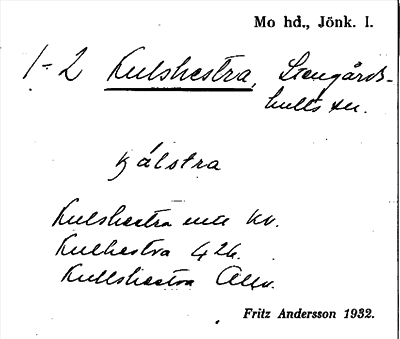 Mo hd., Jönk. l.
1-2 Kulshestra, Stengårds-
hults sn.
kálstra
Kulshestra Kv.
Kulhestra 42h.
Kullshestra
Fritz Andersson 1932.